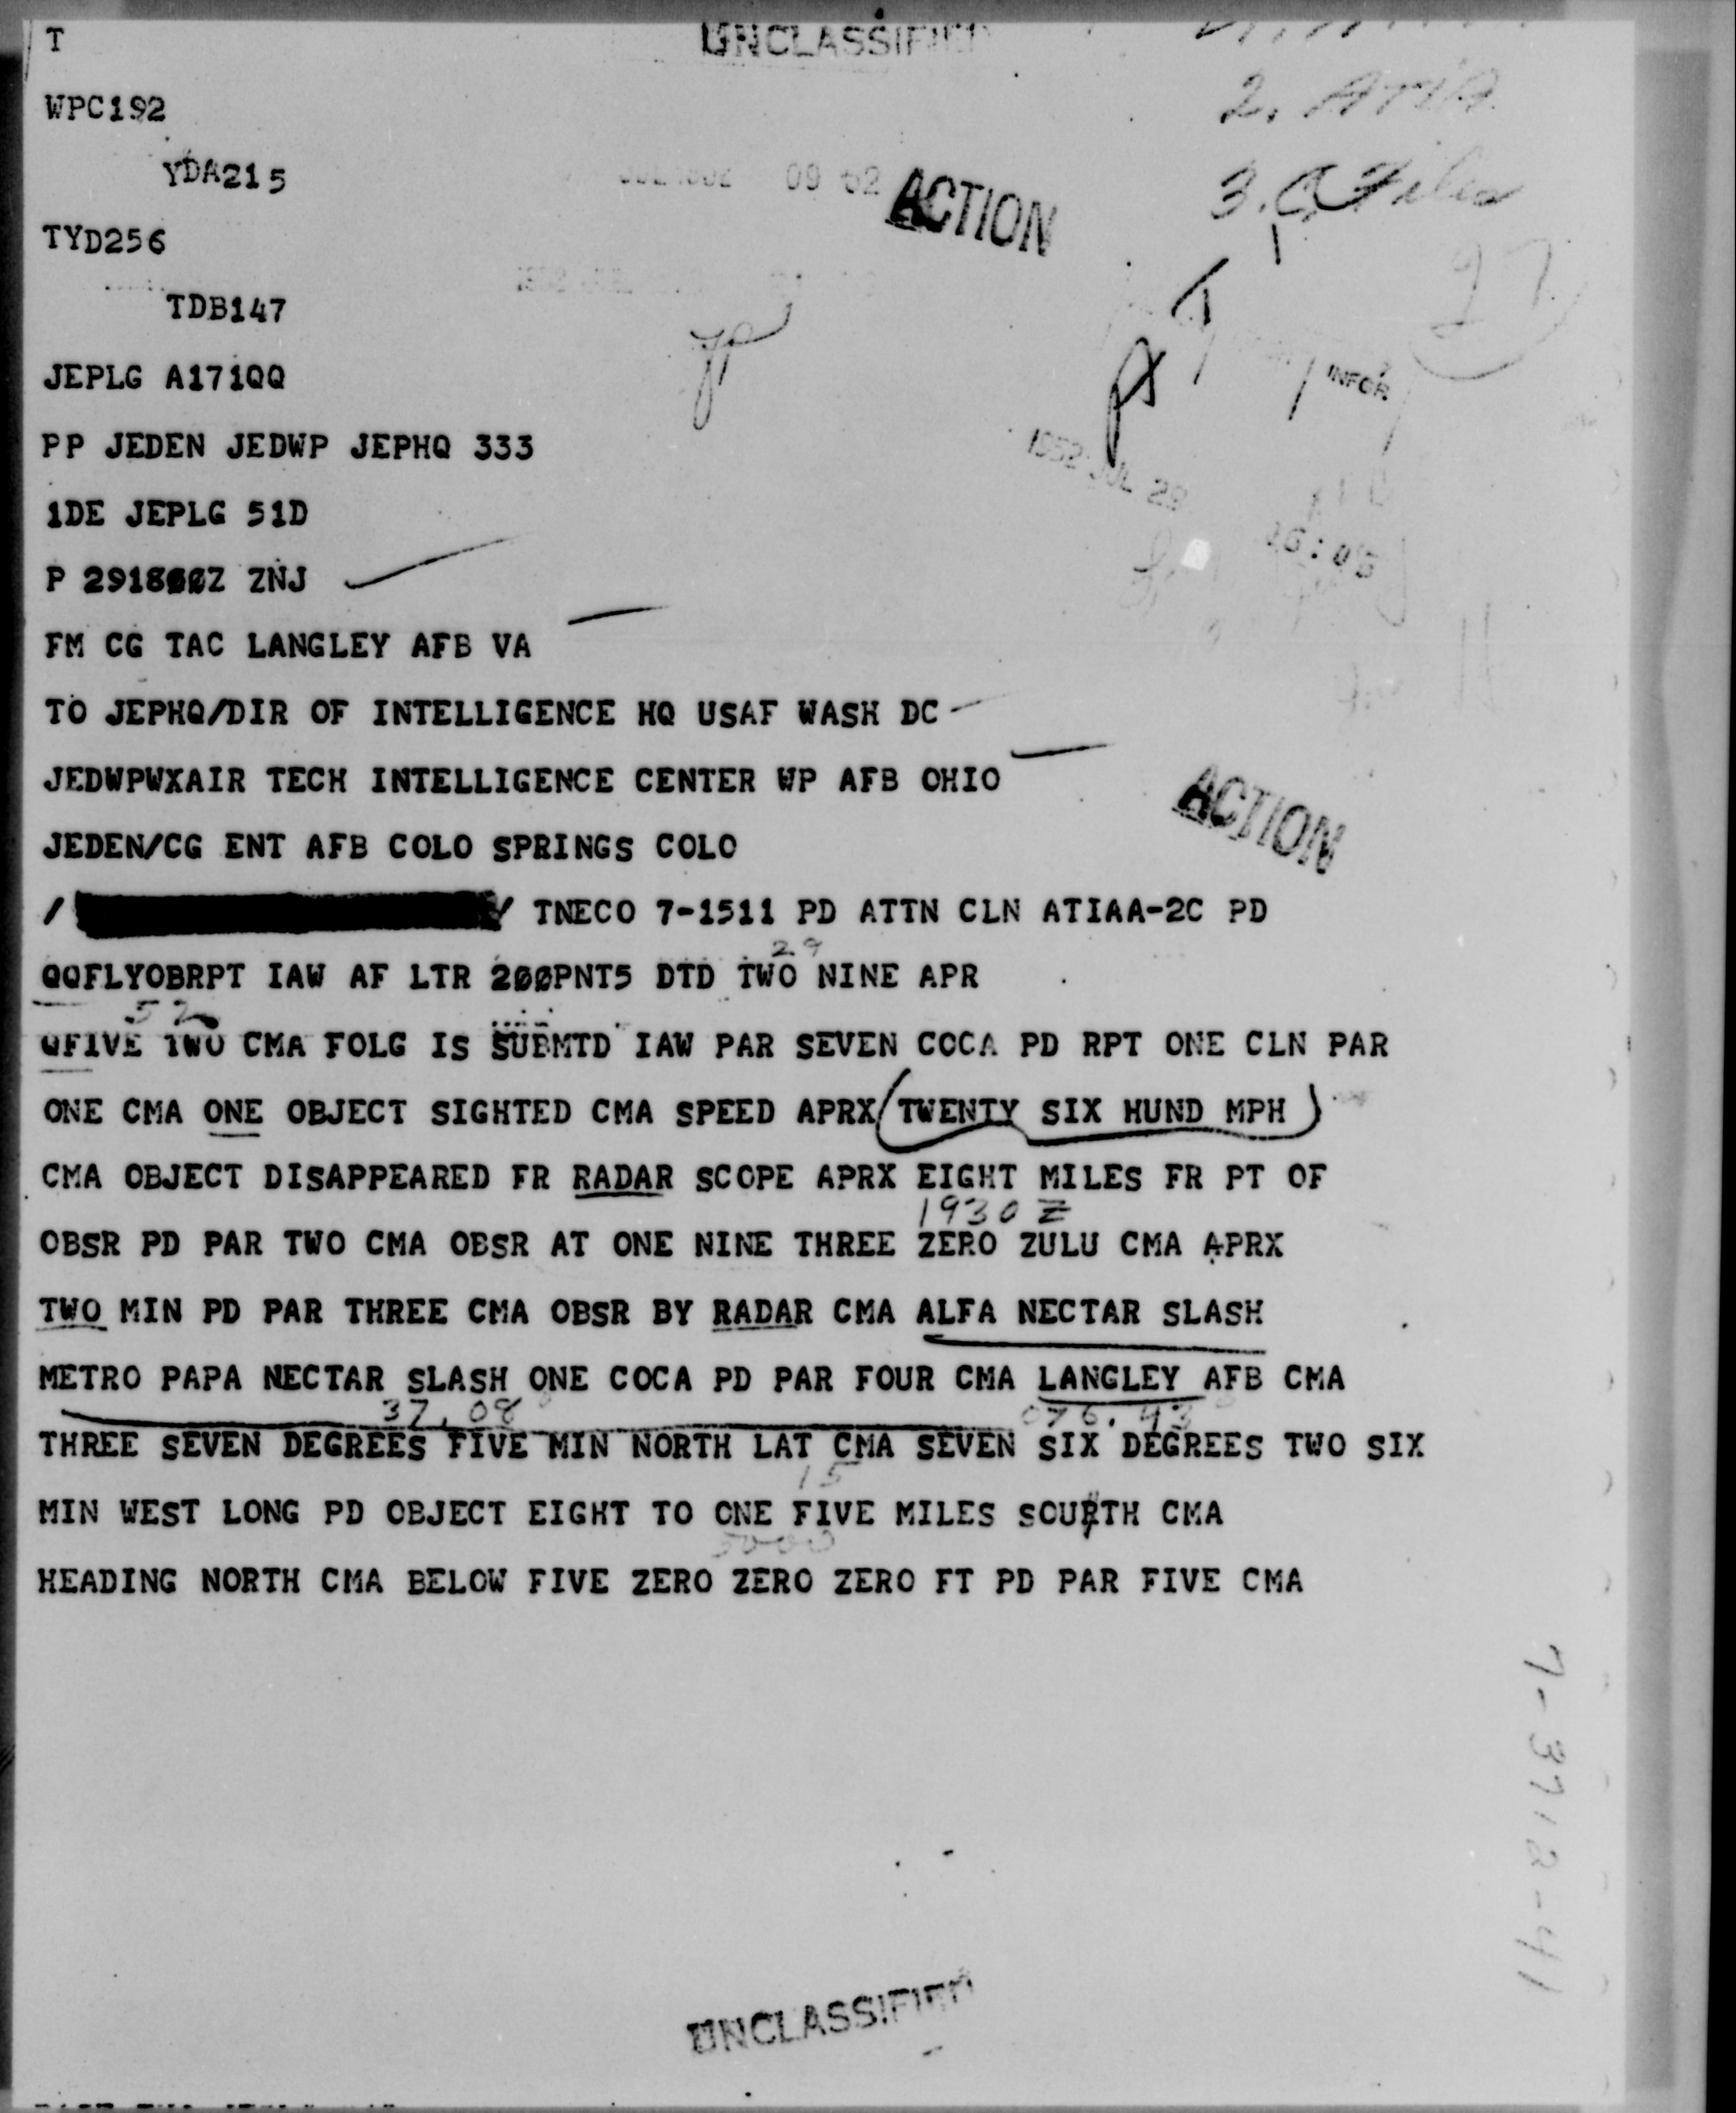 T
UNCLASSIFIED
WPC192
2. ATIA
YDA215
09 52
ACTION
3. Files
TYD256
TDB147
JEPLG A171QQ
INFOR
PP JEDEN JEDWP JEPHQ 333
1952 JUL 29
1DE JEPLG 51D
16:05
P 291800Z ZNJ
FM CG TAC LANGLEY AFB VA
TO JEPHQ/DIR OF INTELLIGENCE HQ USAF WASH DC
JEDWPWXAIR TECH INTELLIGENCE CENTER WP AFB OHIO
ACTION
JEDEN/CG ENT AFB COLO SPRINGS COLO
/ / TNECO 7-1511 PD ATTN CLN ATIAA-2C PD
29
QQFLYOBRPT IAW AF LTR 200PNT5 DTD TWO NINE APR
52
QFIVE TWO CMA FOLG IS SUBMTD IAW PAR SEVEN COCA PD RPT ONE CLN PAR
ONE CMA ONE OBJECT SIGHTED CMA SPEED APRX (TWENTY SIX HUND MPH)
CMA OBJECT DISAPPEARED FR RADAR SCOPE APRX EIGHT MILES FR PT OF
1930 Z
OBSR PD PAR TWO CMA OBSR AT ONE NINE THREE ZERO ZULU CMA APRX
TWO MIN PD PAR THREE CMA OBSR BY RADAR CMA ALFA NECTAR SLASH
METRO PAPA NECTAR SLASH ONE COCA PD PAR FOUR CMA LANGLEY AFB CMA
37.08 076.43
THREE SEVEN DEGREES FIVE MIN NORTH LAT CMA SEVEN SIX DEGREES TWO SIX
15
MIN WEST LONG PD OBJECT EIGHT TO ONE FIVE MILES SOURTH CMA
5000
HEADING NORTH CMA BELOW FIVE ZERO ZERO ZERO FT PD PAR FIVE CMA
7-3712-41
UNCLASSIFIED